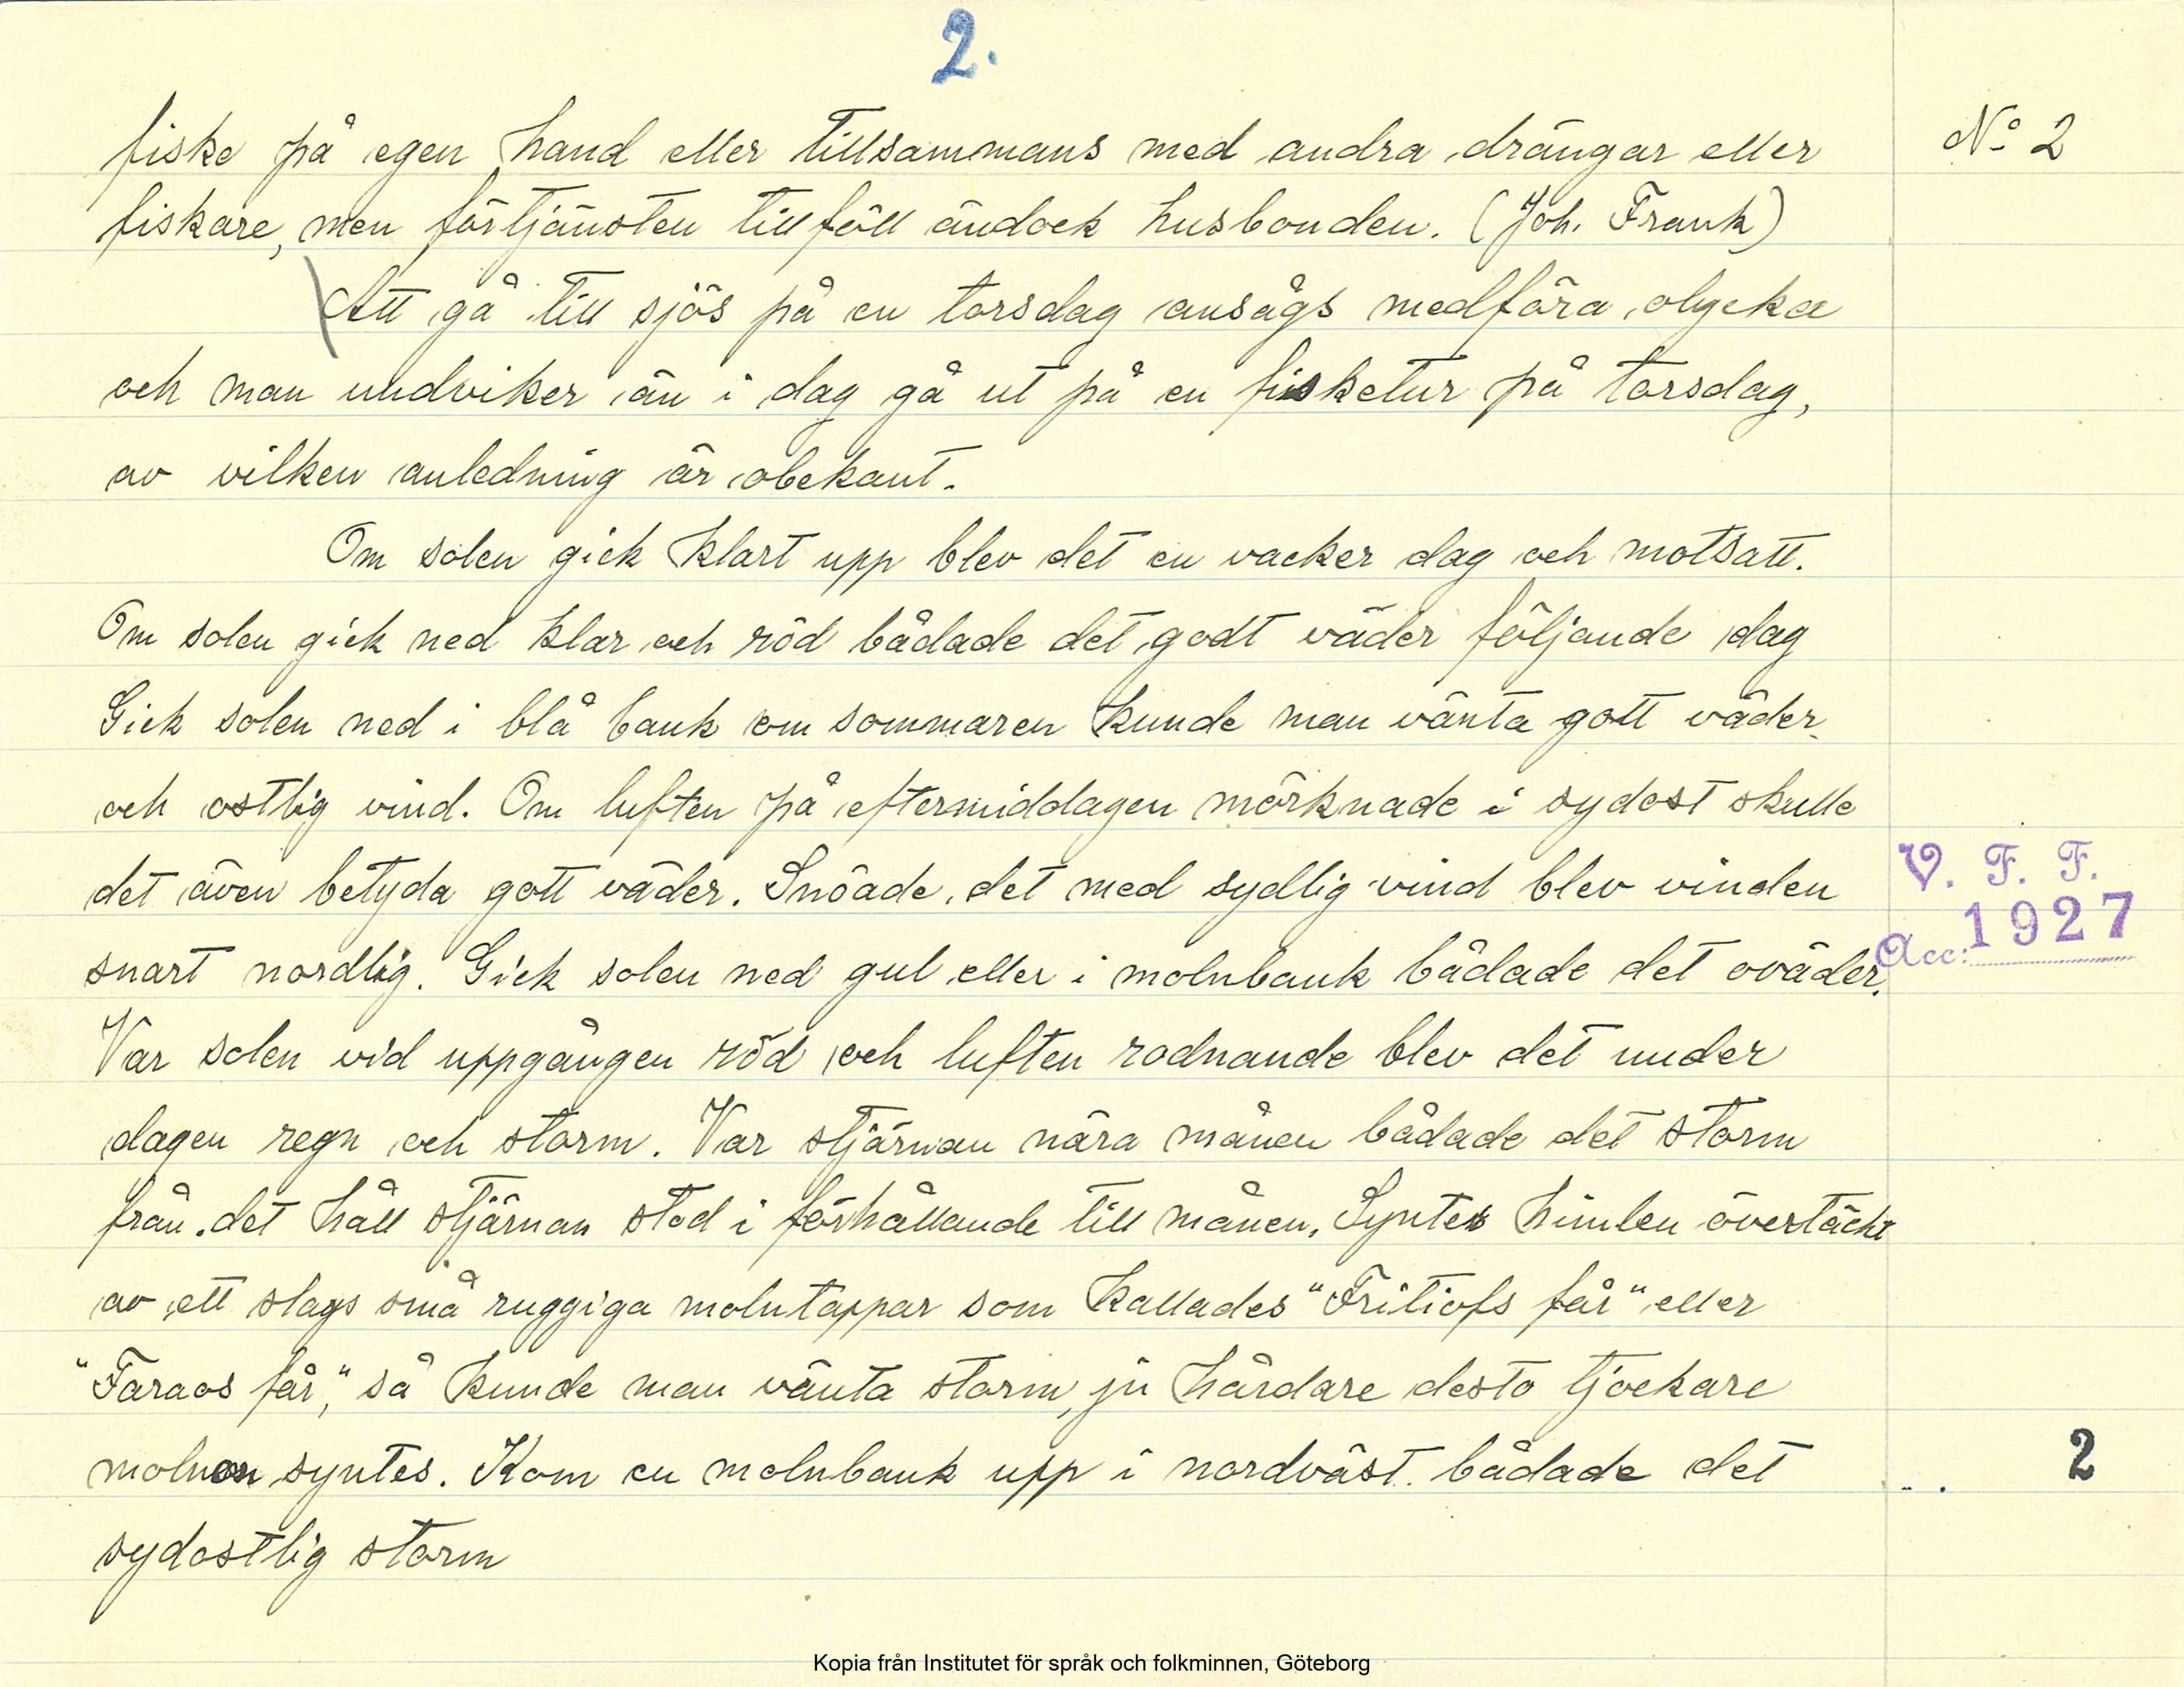 2.
No 2
fiske på egen hand eller tillsammans med andra drängar eller
fiskare, men förtjänsten tillföll ändock husbonden. (Joh. Frank)
Att gå till sjös på en torsdag ansågs medföra olycka
och man undviker än i dag gå ut på en fisketur på torsdag,
av vilken anledning är obekant.
Om solen gick klart upp blev det en vacker dag och motsatt.
Om solen gick ned klar och röd bådade det godt väder följande dag
Gick solen ned i blå bank om sommaren kunde man vänta gott väder
och ostlig vind. Om luften på eftermiddagen mörknade i sydost skulle
det även betyda gott väder. Snöade det med sydlig vind blev vinden
snart nordlig. Gick solen ned gul eller i molnbank bådade det oväder.
Var solen vid uppgången röd och luften rodnande blev det under
dagen regn och storm. Var stjärnan nära månen bådade det storm
från det håll stjärnan stod i förhållande till månen. Syntes himlen övertäckt
av ett slags små ruggiga molntappar som kallades "Fritiofs får" eller
"Faraos får," så kunde man vänta storm, ju hårdare desto tjockare
molnen syntes. Kom en molnbank upp i nordväst bådade det
sydostlig storm
V. F. F.
Acc: 1927
2
Kopia från Institutet för språk och folkminnen, Göteborg